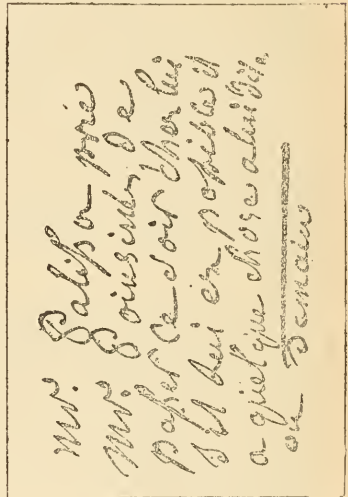 mr. Palisso prie
mr. Poinsinet de
passer ce soir chez lui
s il lui es possible il
a quelque chose a lui dire
ou demain